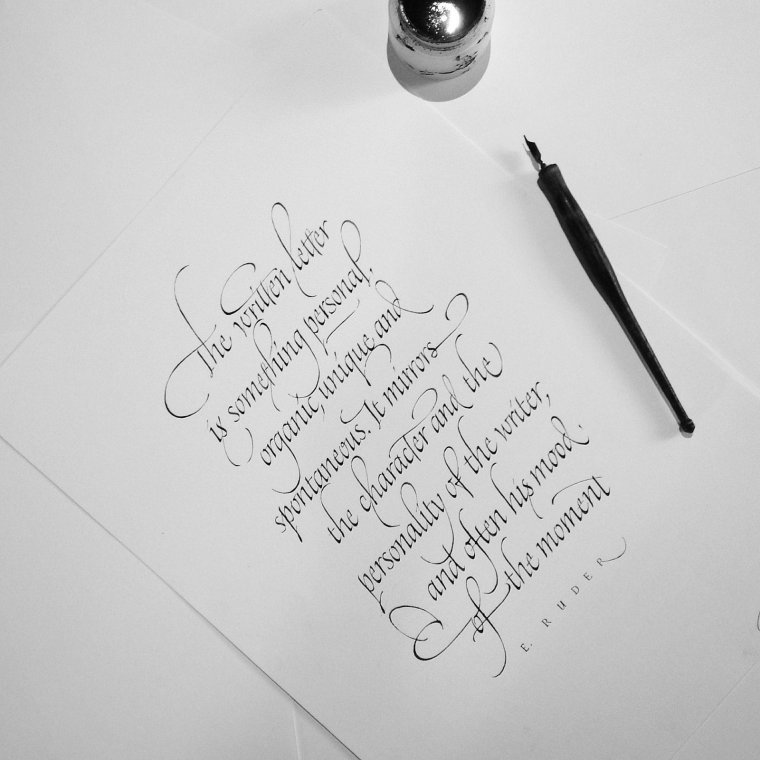 The written letter
is something personal,
organic, unique and
spontaneous. It mirrors
the character and the
personality of the writer,
and often his mood.
of the moment
E. RUDER